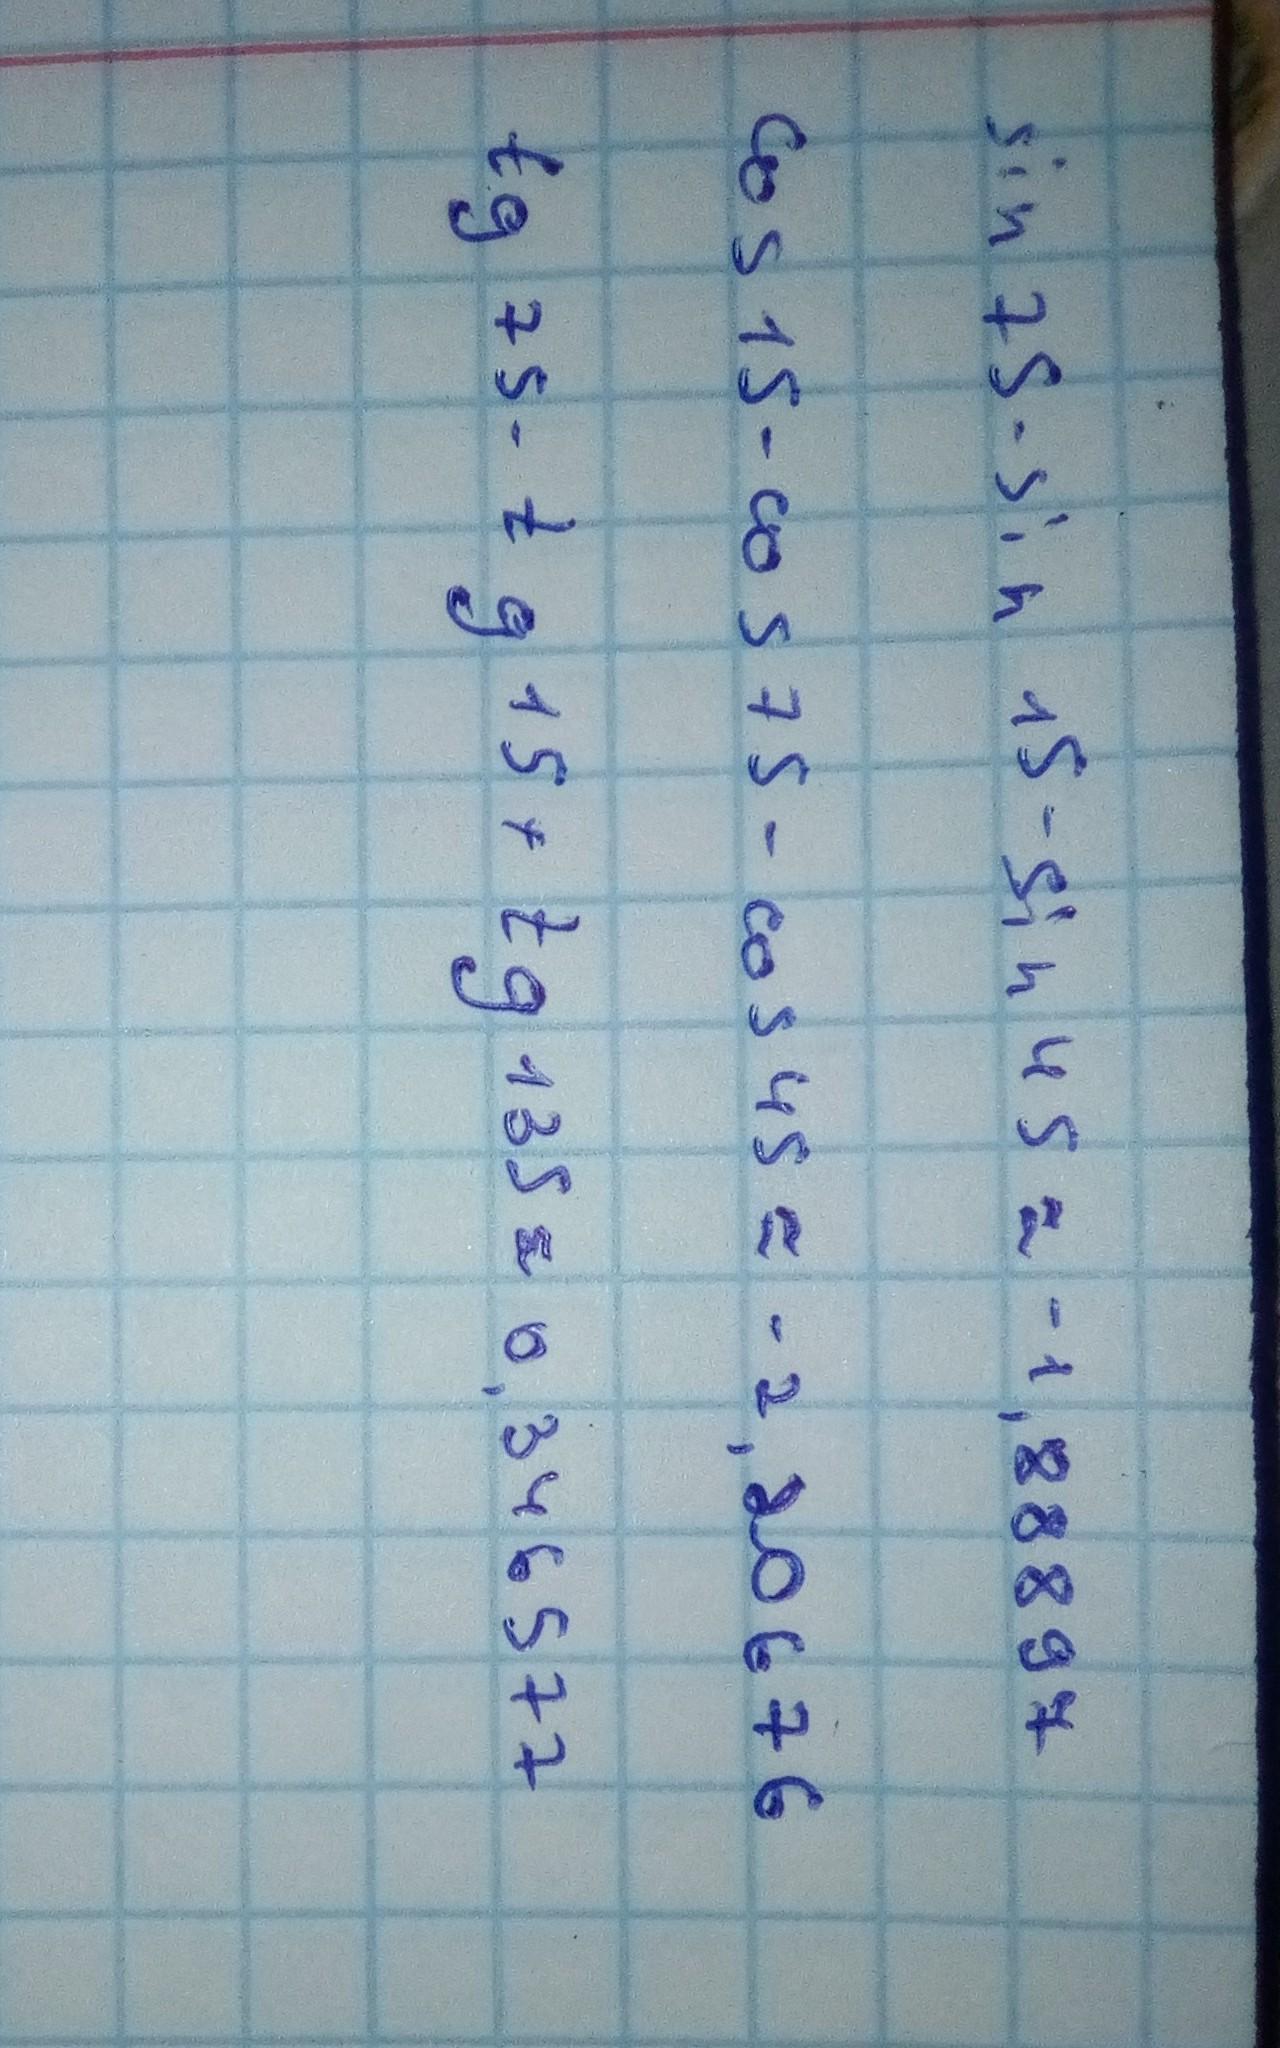 sin 75 - sin 15 - sin 45 = -1,88897
cos 15 - cos 75 - cos 45 = -2,20676
tg 75 - tg 15 + tg 135 = 0,346577